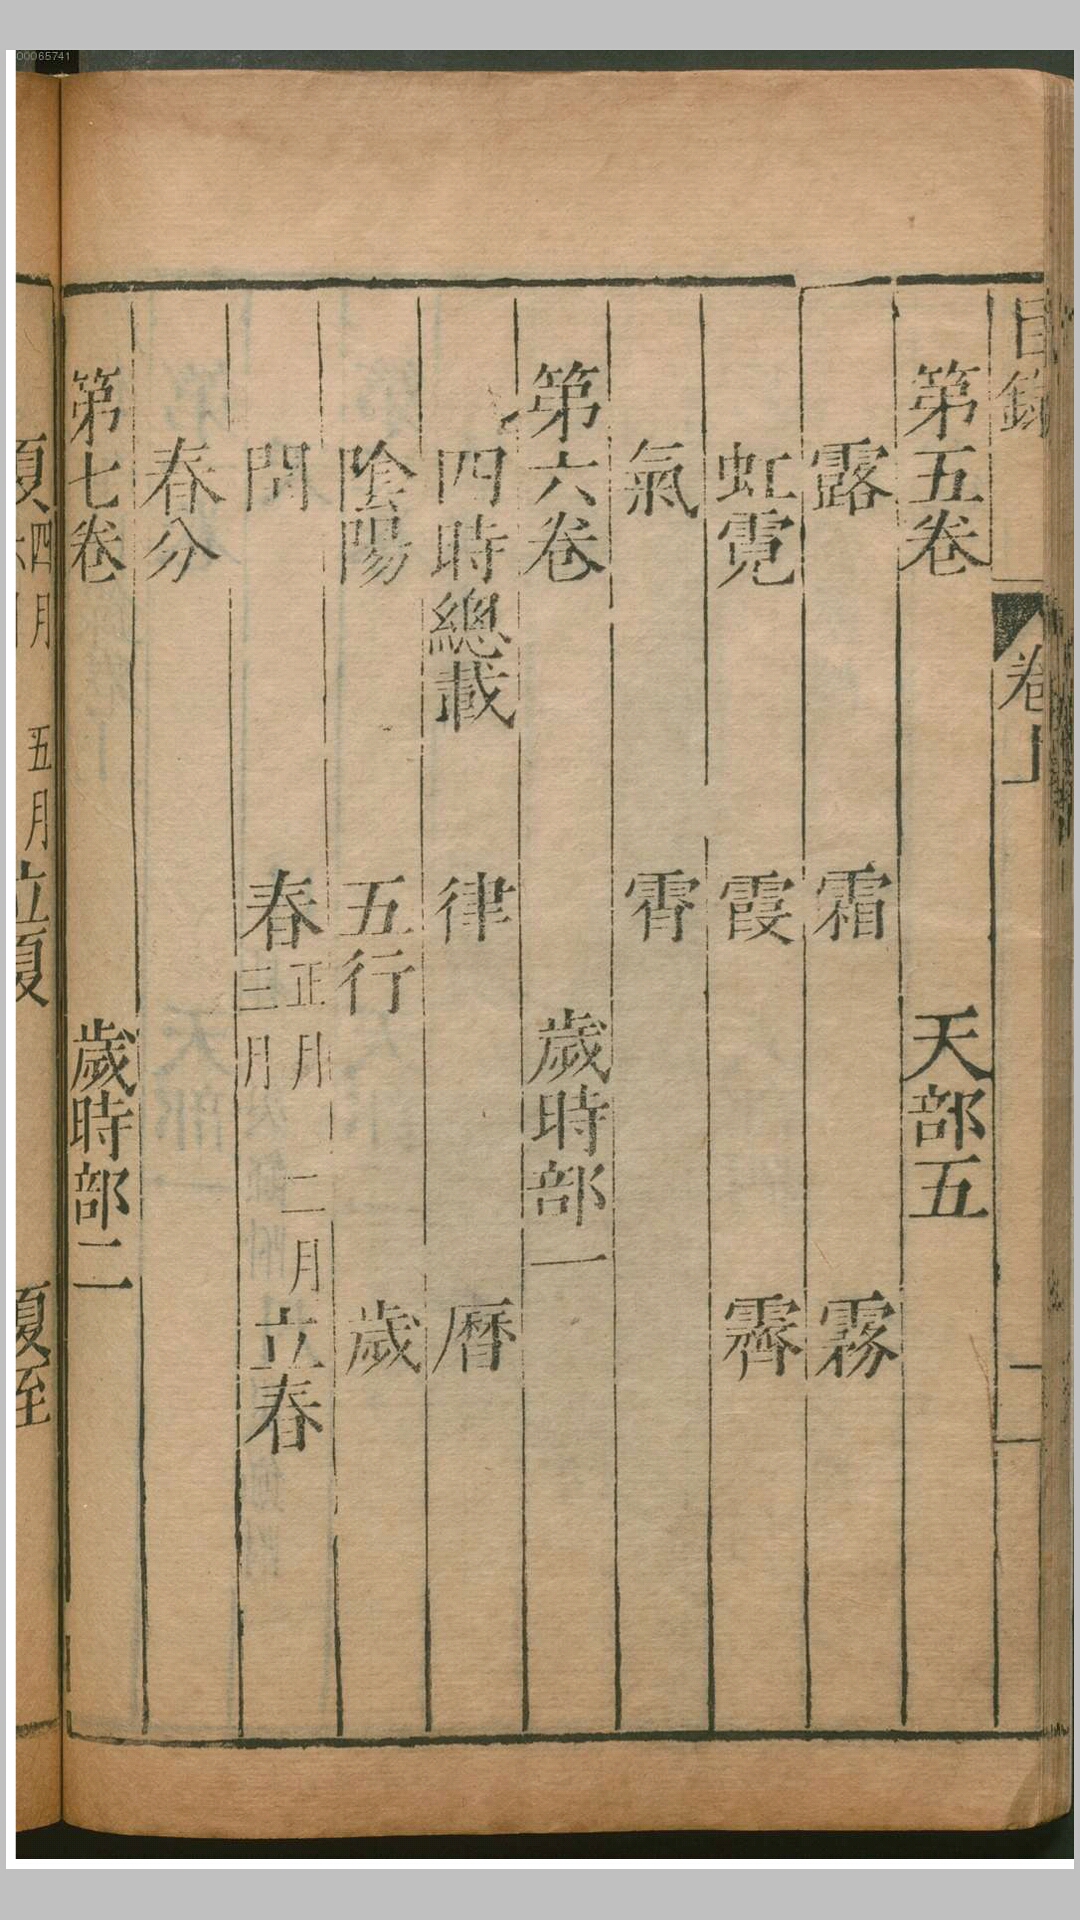 00065741
目錄 卷上 二
第五卷 天部五
露 霜 霧
虹霓 霞 霽
氣 霄
第六卷 歲時部一
四時總載 律 曆
陰陽 五行 歲
閏 春 正月 二月 三月 立春
春分
第七卷 歲時部二
夏 四月 五月 立夏 夏至